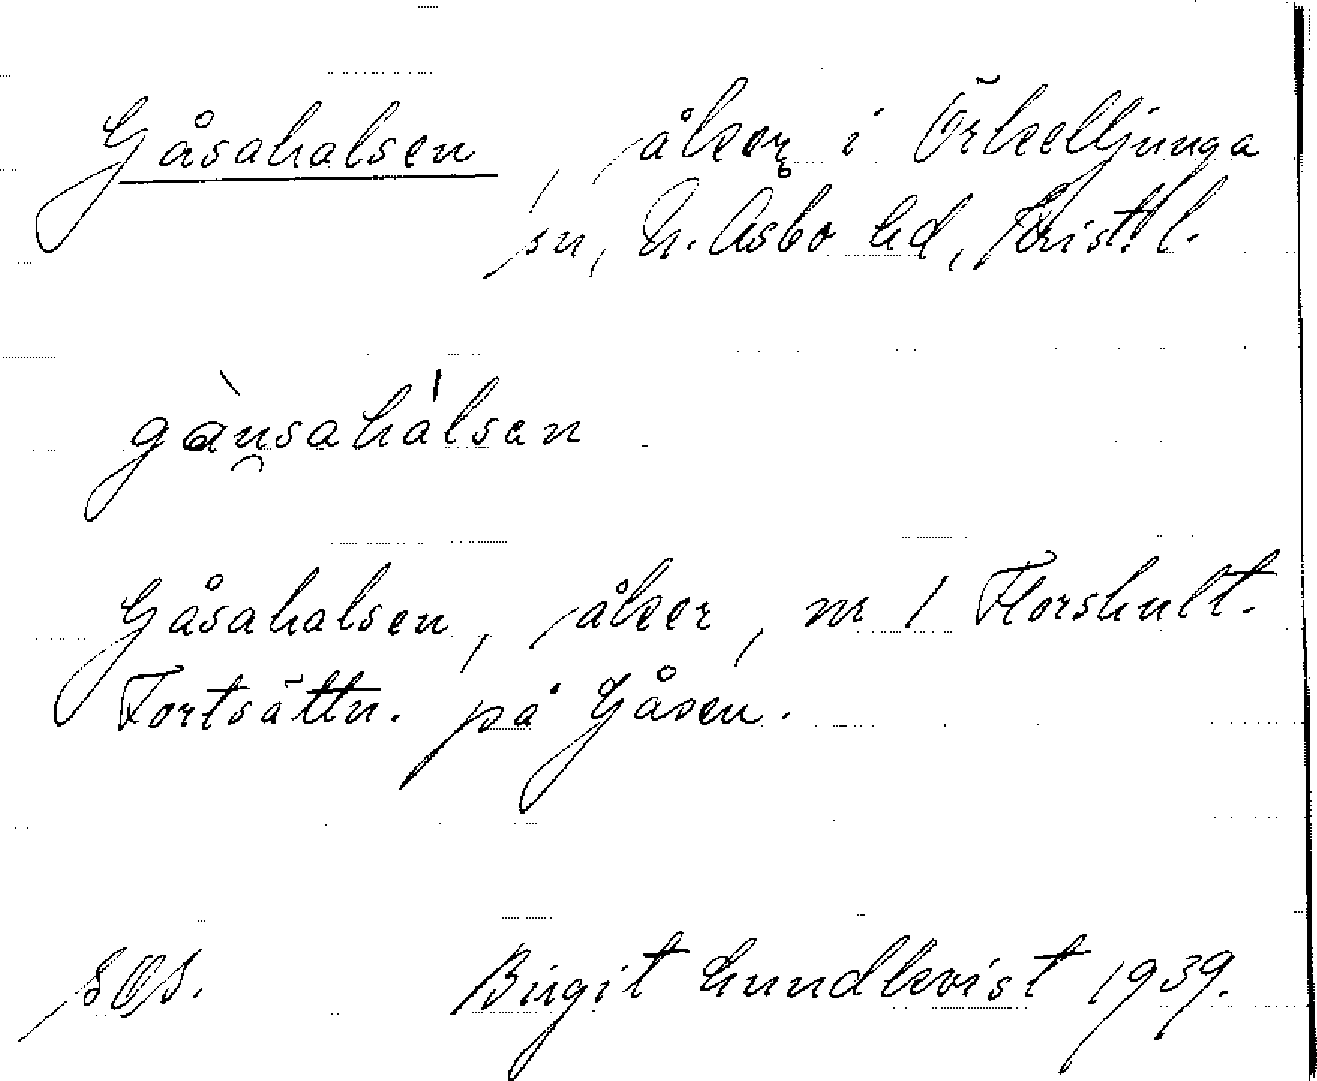 Gåsahalsen, åker i Örkelljunga
sn, N. Åsbo hd, Krist. l.
gàu̯sahálsen
Gåsahalsen, åker, nr 1 Florshult.
Fortsättn. på Gåsen.
Birgit Lundkvist 1939.